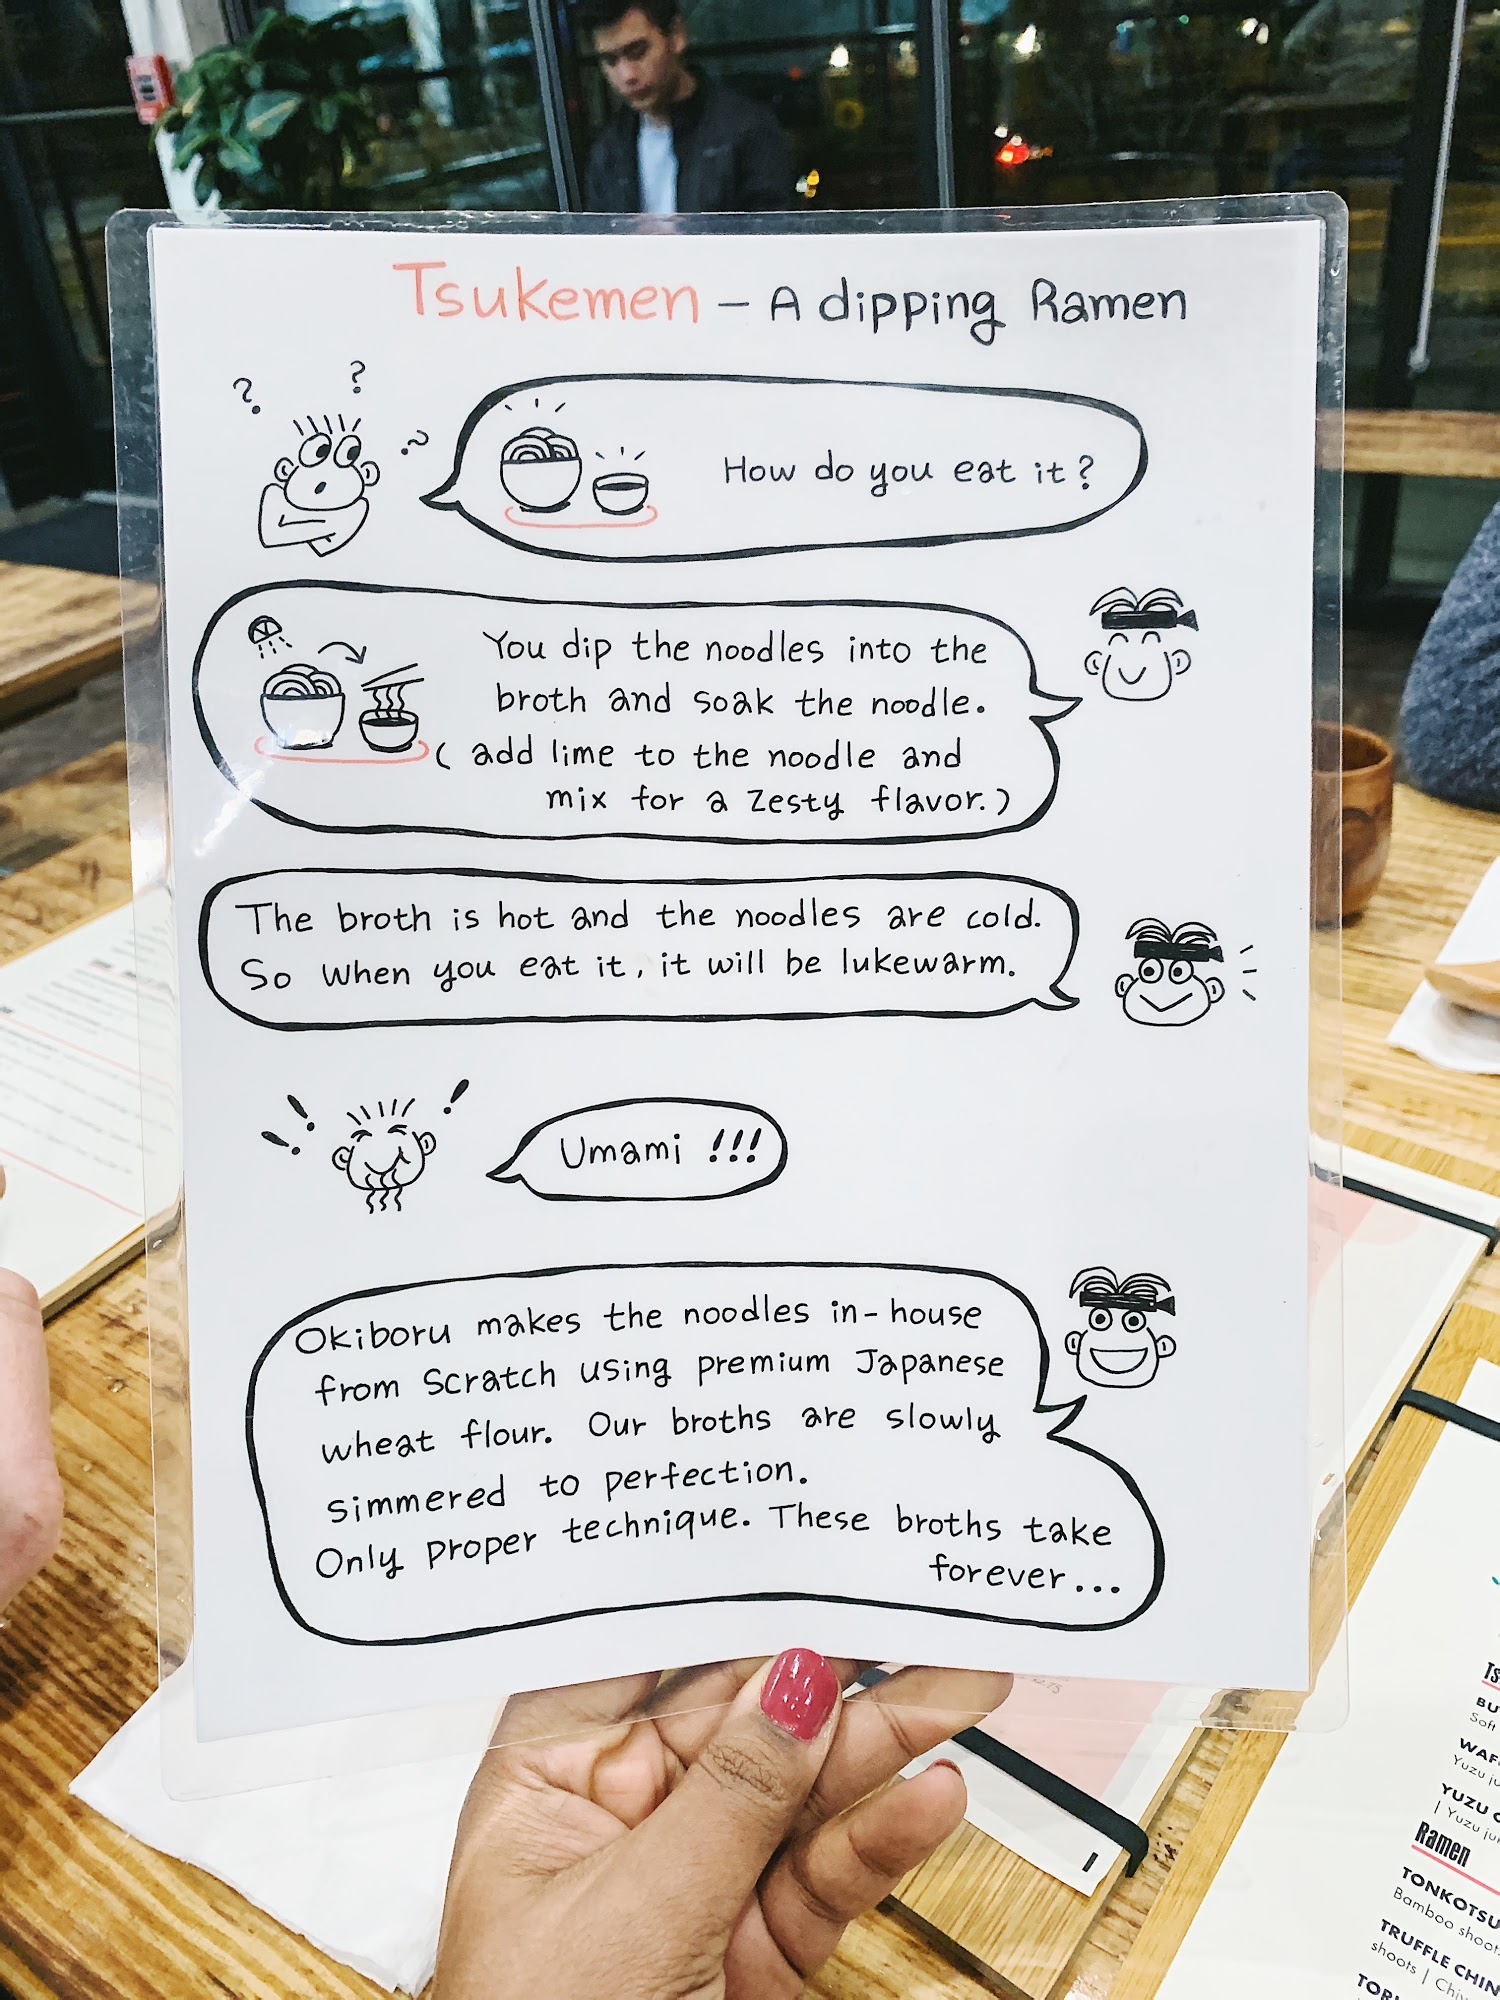 Tsukemen – A dipping Ramen
? ? ?
How do you eat it?
You dip the noodles into the
broth and soak the noodle.
( add lime to the noodle and
mix for a zesty flavor.)
The broth is hot and the noodles are cold.
So when you eat it, it will be lukewarm.
! ! !
Umami !!!
Okiboru makes the noodles in-house
from scratch using premium Japanese
wheat flour. Our broths are slowly
simmered to perfection.
Only proper technique. These broths take
forever...
Soft
Yuzu
YUZU
| Yuzu
Ramen
Bamboo
shoots |